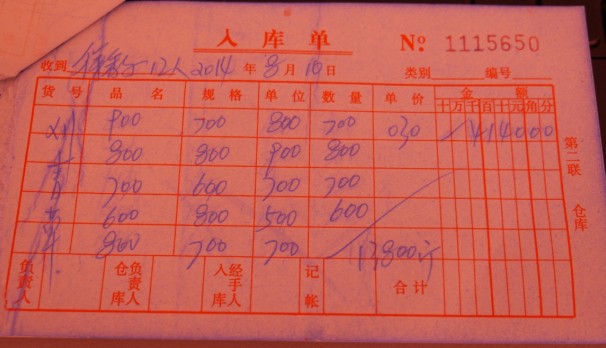 入库单 № 1115650
收到 12人 2014 年 8 月 10 日 类别 编号
货号 品名 规格 单位 数量 单价 金额
十万千百十元角分
900 700 800 700 030 414000
800 800 900 800
700 600 700 700
600 800 500 600
800 700 700 13800斤
负责人 仓库负责人 入库经手人 记帐 合计
第二联 仓库